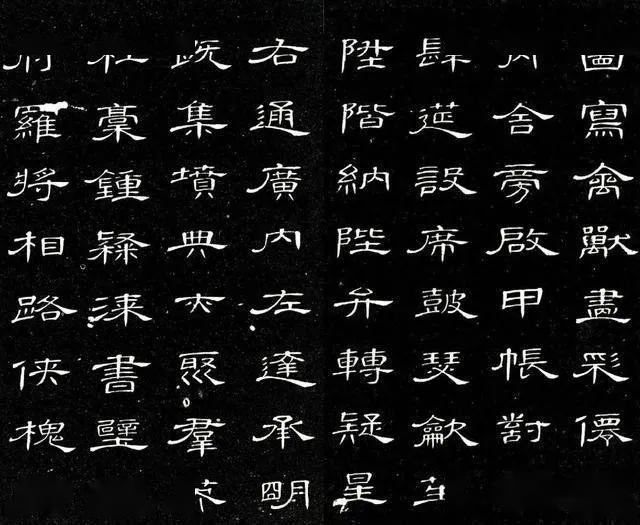 圖寫禽獸畫彩僊
舍旁啟甲帳對
肆筵設席鼓瑟龡
陞階納陛弁轉疑星
右通廣內左達承明
既集墳典亦聚羣
杜稾鍾隸漆書壁
羅將相路俠槐